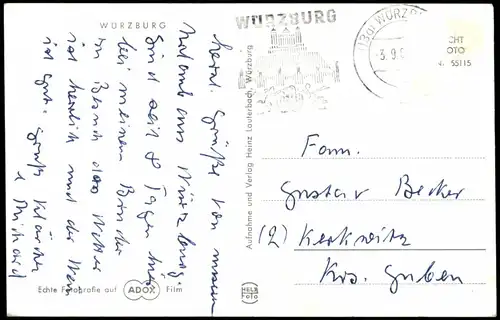 WÜRZBURG
Herzl. Grüße von unserem
Urlaub aus Würzburg.
Sind seit 8 Tagen hier
bei meinem Bruder
zu Besuch. Das Wetter
ist herrlich und der Wein
ist gut. Gruß Klärchen
u. Richard
Echte Fotografie auf ADOX Film
Aufnahme und Verlag Heinz Lauterbach, Würzburg
HELA
Foto
WÜRZBURG
(13a) WÜRZB
-3.9.6
CHT
OTO
55115
Fam.
Gustav Becker
(2) Kerkwitz
Krs. Guben